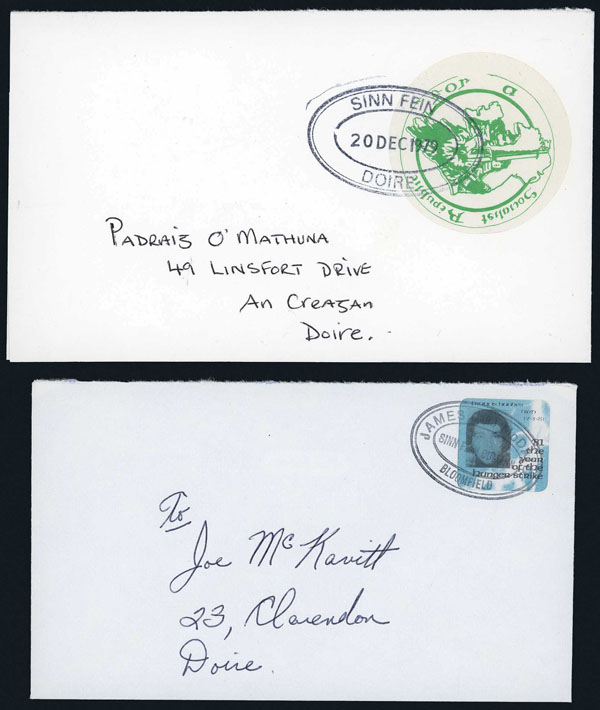 For a
Socialist Republic
SINN FEIN
20 DEC 1979
DOIRE
PADRAIG O'MATHUNA
49 LINSFORT DRIVE
An Creagan
Doire.
JAMES
SINN
BLOOMFIELD
81
the
year
of the
hunger strike
To
Joe McKavitt
23, Clarendon
Doire.